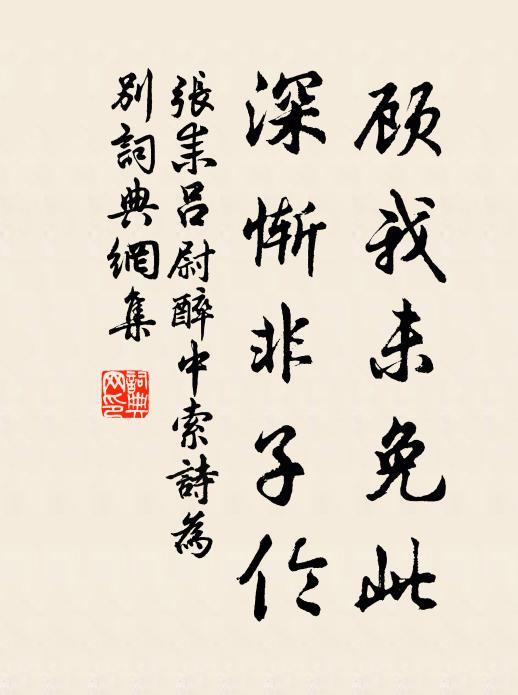 顾我未免此
深惭非子伶
張耒呂尉醉中索詩為
別詞典網集
詞典网印